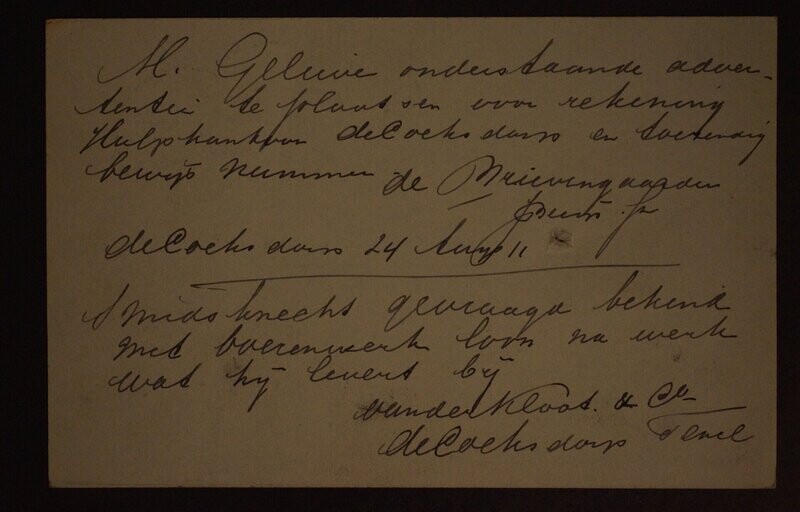 M. Gelieve onderstaande adver-
tentie te plaatsen voor rekening
Hulpkantoor deCocksdorp en toezending
bewijs nummer de Brievengaarder
deCocksdorp 24 Aug 11
Smidsknecht gevraagd bekend
met boerenwerk loon na werk
wat hij levert bij
vander Kloot. & Co
deCocksdorp Texel